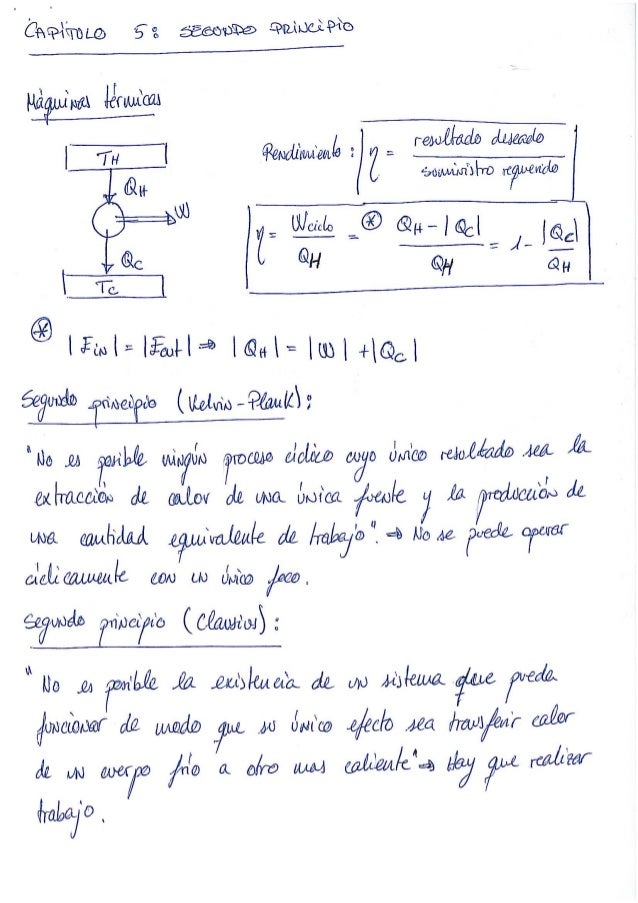 CAPÍTULO 5: SEGUNDO PRINCIPIO
Máquinas térmicas
TH
QH
W
QC
TC
Rendimiento: η = resultado deseado / suministro requerido
η = Wciclo / QH =⊛ QH - |Qc| / QH = 1 - |Qc| / QH
⊛ |Ein| = |Eout| ⇒ |QH| = |W| + |Qc|
Segundo principio (Kelvin-Plank):
"No es posible ningún proceso cíclico cuyo único resultado sea la
extracción de calor de una única fuente y la producción de
una cantidad equivalente de trabajo". → No se puede operar
cíclicamente con un único foco.
Segundo principio (Clausius):
"No es posible la existencia de un sistema que pueda
funcionar de modo que su único efecto sea transferir calor
de un cuerpo frío a otro mas caliente" → Hay que realizar
trabajo.